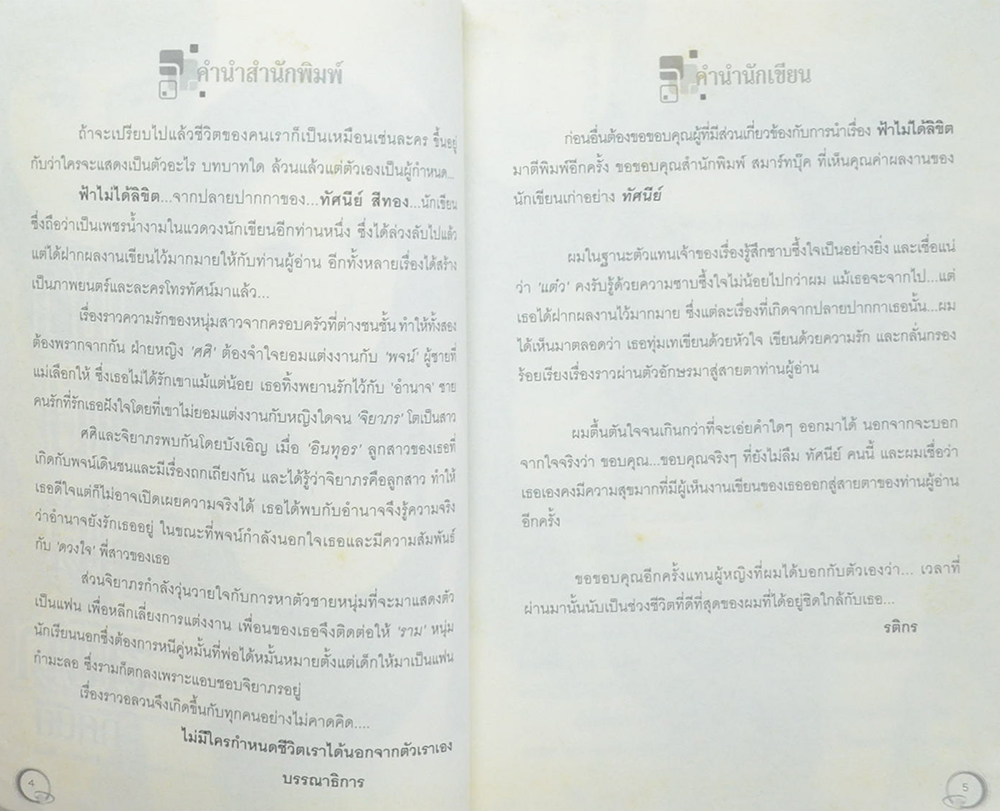 คำนำสำนักพิมพ์
ถ้าจะเปรียบไปแล้วชีวิตของคนเราก็เป็นเหมือนเช่นละคร ขึ้นอยู่
กับว่าใครจะแสดงเป็นตัวอะไร บทบาทใด ล้วนแล้วแต่ตัวเองเป็นผู้กำหนด...
ฟ้าไม่ได้ลิขิต...จากปลายปากกาของ...ทัศนีย์ สีทอง...นักเขียน
ซึ่งถือว่าเป็นเพชรน้ำงามในแวดวงนักเขียนอีกท่านหนึ่ง ซึ่งได้ล่วงลับไปแล้ว
แต่ได้ฝากผลงานเขียนไว้มากมายให้กับท่านผู้อ่าน อีกทั้งหลายเรื่องได้สร้าง
เป็นภาพยนตร์และละครโทรทัศน์มาแล้ว...
เรื่องราวความรักของหนุ่มสาวจากครอบครัวที่ต่างชนชั้น ทำให้ทั้งสอง
ต้องพรากจากกัน ฝ่ายหญิง ‘ศศิ’ ต้องจำใจยอมแต่งงานกับ ‘พจน์’ ผู้ชายที่
แม่เลือกให้ ซึ่งเธอไม่ได้รักเขาแม้แต่น้อย เธอทิ้งพยานรักไว้กับ ‘อำนาจ’ ชาย
คนรักที่รักเธอฝังใจโดยที่เขาไม่ยอมแต่งงานกับหญิงใดจน ‘จิยาภร’ โตเป็นสาว
ศศิและจิยาภรพบกันโดยบังเอิญ เมื่อ ‘อินทุอร’ ลูกสาวของเธอที่
เกิดกับพจน์เดินชนและมีเรื่องถกเถียงกัน และได้รู้ว่าจิยาภรคือลูกสาว ทำให้
เธอดีใจแต่ก็ไม่อาจเปิดเผยความจริงได้ เธอได้พบกับอำนาจจึงรู้ความจริง
ว่าอำนาจยังรักเธออยู่ ในขณะที่พจน์กำลังนอกใจเธอและมีความสัมพันธ์
กับ ‘ดวงใจ’ พี่สาวของเธอ
ส่วนจิยาภรกำลังวุ่นวายใจกับการหาตัวชายหนุ่มที่จะมาแสดงตัว
เป็นแฟน เพื่อหลีกเลี่ยงการแต่งงาน เพื่อนของเธอจึงติดต่อให้ ‘ราม’ หนุ่ม
นักเรียนนอกซึ่งต้องการหนีคู่หมั้นที่พ่อได้หมั้นหมายตั้งแต่เด็กให้มาเป็นแฟน
กำมะลอ ซึ่งรามก็ตกลงเพราะแอบชอบจิยาภรอยู่
เรื่องราวอลวนจึงเกิดขึ้นกับทุกคนอย่างไม่คาดคิด....
ไม่มีใครกำหนดชีวิตเราได้นอกจากตัวเราเอง
บรรณาธิการ
4
คำนำนักเขียน
ก่อนอื่นต้องขอขอบคุณผู้ที่มีส่วนเกี่ยวข้องกับการนำเรื่อง ฟ้าไม่ได้ลิขิต
มาตีพิมพ์อีกครั้ง ขอขอบคุณสำนักพิมพ์ สมาร์ทบุ๊ค ที่เห็นคุณค่าผลงานของ
นักเขียนเก่าอย่าง ทัศนีย์
ผมในฐานะตัวแทนเจ้าของเรื่องรู้สึกซาบซึ้งใจเป็นอย่างยิ่ง และเชื่อแน่
ว่า ‘แต๋ว’ คงรับรู้ด้วยความซาบซึ้งใจไม่น้อยไปกว่าผม แม้เธอจะจากไป...แต่
เธอได้ฝากผลงานไว้มากมาย ซึ่งแต่ละเรื่องที่เกิดจากปลายปากกาเธอนั้น...ผม
ได้เห็นมาตลอดว่า เธอทุ่มเทเขียนด้วยหัวใจ เขียนด้วยความรัก และกลั่นกรอง
ร้อยเรียงเรื่องราวผ่านตัวอักษรมาสู่สายตาท่านผู้อ่าน
ผมตื้นตันใจจนเกินกว่าที่จะเอ่ยคำใดๆ ออกมาได้ นอกจากจะบอก
จากใจจริงว่า ขอบคุณ...ขอบคุณจริงๆ ที่ยังไม่ลืม ทัศนีย์ คนนี้ และผมเชื่อว่า
เธอเองคงมีความสุขมากที่มีผู้เห็นงานเขียนของเธอออกสู่สายตาของท่านผู้อ่าน
อีกครั้ง
ขอขอบคุณอีกครั้งแทนผู้หญิงที่ผมได้บอกกับตัวเองว่า... เวลาที่
ผ่านมานั้นนับเป็นช่วงชีวิตที่ดีที่สุดของผมที่ได้อยู่ชิดใกล้กับเธอ...
รติกร
5